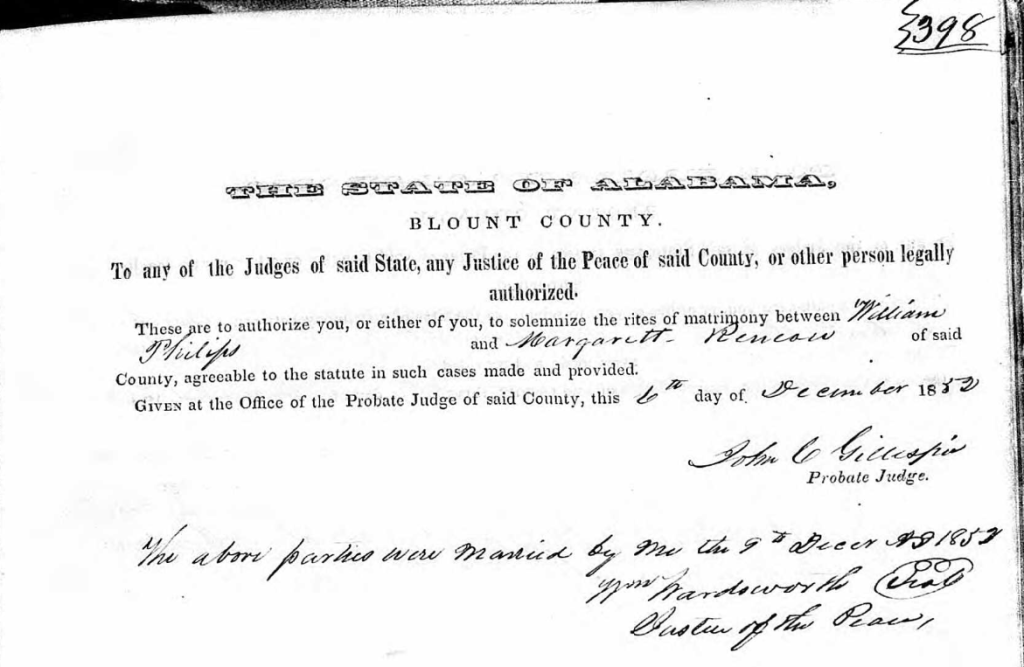 398
THE STATE OF ALABAMA,
BLOUNT COUNTY.
To any of the Judges of said State, any Justice of the Peace of said County, or other person legally
authorized.
These are to authorize you, or either of you, to solemnize the rites of matrimony between William
Philips and Margarett of said
County, agreeable to the statute in such cases made and provided.
GIVEN at the Office of the Probate Judge of said County, this 6th day of December 1852
John C Gillespie
Probate Judge.
The above parties were Married by me the 9th Decer AD 1852
Wm Wardsworth
Justice of the Peace,